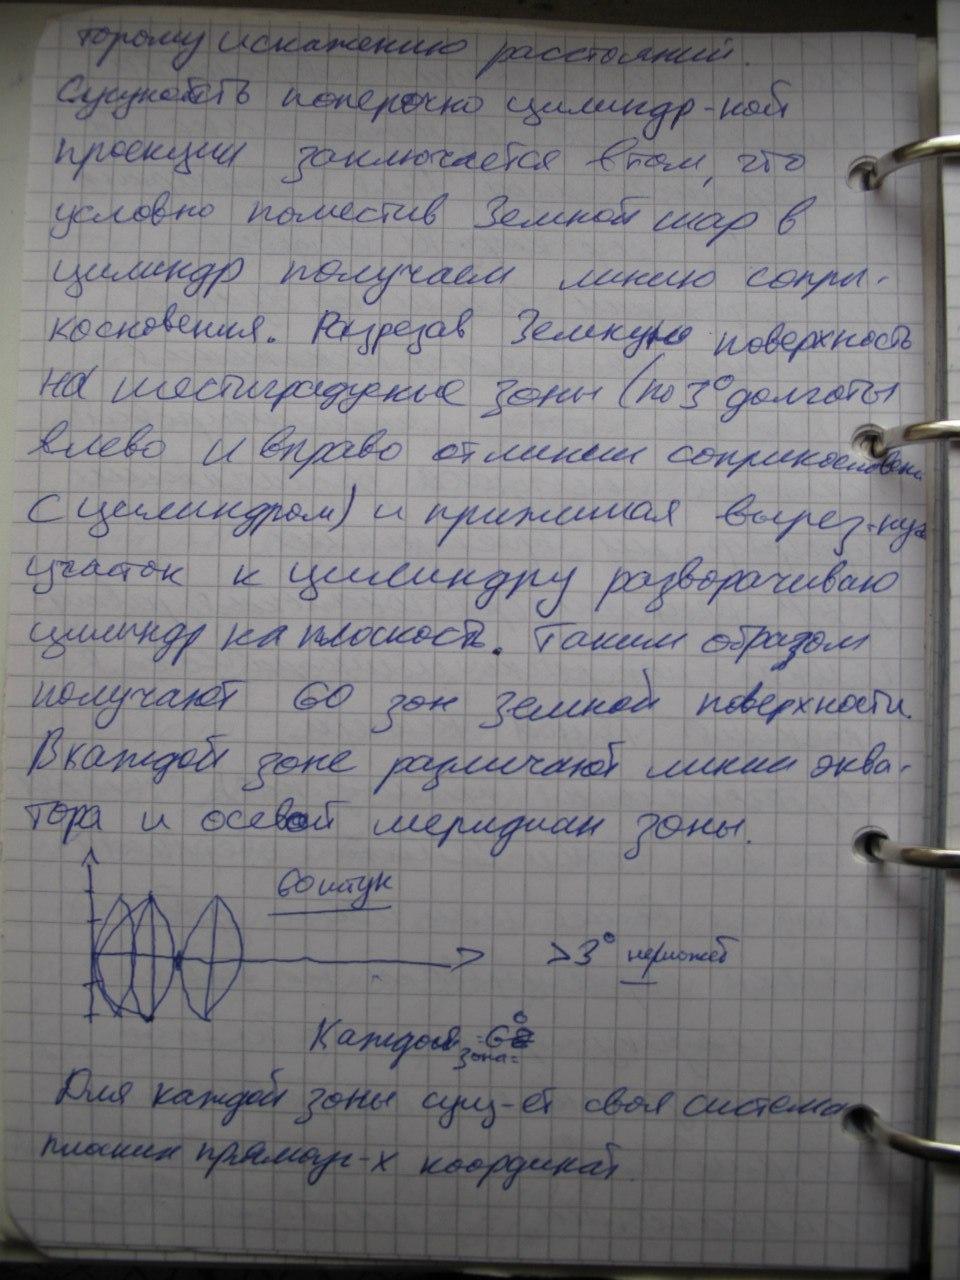 торому искажению расстояний.
Сущность поперечно цилиндр-ной
проекции заключается в том, что
условно поместив Земной шар в
цилиндр получаем линию сопри-
косновения. Разрезав Земную поверхность
на шестиградусные зоны (по 3° долготы
влево и вправо от линии соприкосновени
с цилиндром) и прижимая вырез-ную
участок к цилиндру разворачиваю
цилиндр на плоскость. Таким образом
получают 60 зон земной поверхности.
В каждой зоне различают линии эква-
тора и осевой меридиан зоны.
60 штук
>3° не может
Каждая зона = 6°
Для каждой зоны сущ-ет своя система
плоских прямоуг-х координат.